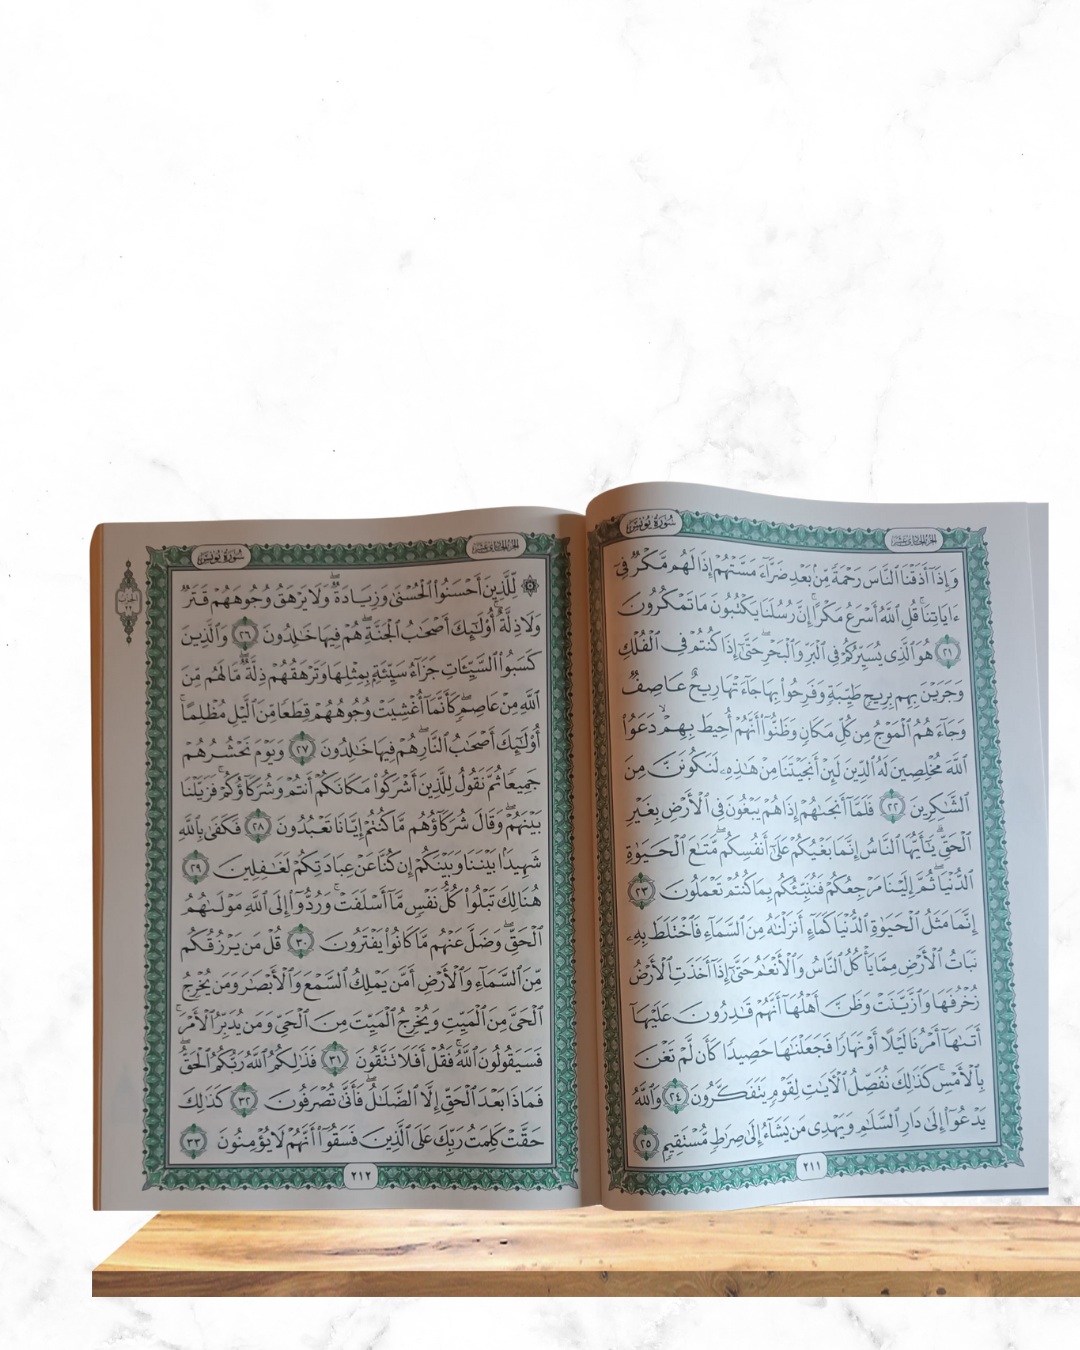 سُورَةُ يُونُسَ
الجزء الحادي عشر
وَإِذَآ أَذَقۡنَا ٱلنَّاسَ رَحۡمَةٗ مِّنۢ بَعۡدِ ضَرَّآءَ مَسَّتۡهُمۡ إِذَا لَهُم مَّكۡرٞ فِيٓ
ءَايَاتِنَاۚ قُلِ ٱللَّهُ أَسۡرَعُ مَكۡرًاۚ إِنَّ رُسُلَنَا يَكۡتُبُونَ مَا تَمۡكُرُونَ
٢١ هُوَ ٱلَّذِي يُسَيِّرُكُمۡ فِي ٱلۡبَرِّ وَٱلۡبَحۡرِۖ حَتَّىٰٓ إِذَا كُنتُمۡ فِي ٱلۡفُلۡكِ
وَجَرَيۡنَ بِهِم بِرِيحٖ طَيِّبَةٖ وَفَرِحُواْ بِهَا جَآءَتۡهَا رِيحٌ عَاصِفٞ
وَجَآءَهُمُ ٱلۡمَوۡجُ مِن كُلِّ مَكَانٖ وَظَنُّوٓاْ أَنَّهُمۡ أُحِيطَ بِهِمۡ دَعَوُاْ
ٱللَّهَ مُخۡلِصِينَ لَهُ ٱلدِّينَ لَئِنۡ أَنجَيۡتَنَا مِنۡ هَٰذِهِۦ لَنَكُونَنَّ مِنَ
ٱلشَّٰكِرِينَ ٢٢ فَلَمَّآ أَنجَىٰهُمۡ إِذَا هُمۡ يَبۡغُونَ فِي ٱلۡأَرۡضِ بِغَيۡرِ
ٱلۡحَقِّۗ يَٰٓأَيُّهَا ٱلنَّاسُ إِنَّمَا بَغۡيُكُمۡ عَلَىٰٓ أَنفُسِكُمۖ مَّتَٰعَ ٱلۡحَيَوٰةِ
ٱلدُّنۡيَاۖ ثُمَّ إِلَيۡنَا مَرۡجِعُكُمۡ فَنُنَبِّئُكُم بِمَا كُنتُمۡ تَعۡمَلُونَ ٢٣
إِنَّمَا مَثَلُ ٱلۡحَيَوٰةِ ٱلدُّنۡيَا كَمَآءٍ أَنزَلۡنَٰهُ مِنَ ٱلسَّمَآءِ فَٱخۡتَلَطَ بِهِۦ
نَبَاتُ ٱلۡأَرۡضِ مِمَّا يَأۡكُلُ ٱلنَّاسُ وَٱلۡأَنۡعَٰمُ حَتَّىٰٓ إِذَآ أَخَذَتِ ٱلۡأَرۡضُ
زُخۡرُفَهَا وَٱزَّيَّنَتۡ وَظَنَّ أَهۡلُهَآ أَنَّهُمۡ قَٰدِرُونَ عَلَيۡهَآ
أَتَىٰهَآ أَمۡرُنَا لَيۡلًا أَوۡ نَهَارٗا فَجَعَلۡنَٰهَا حَصِيدٗا كَأَن لَّمۡ تَغۡنَ
بِٱلۡأَمۡسِۚ كَذَٰلِكَ نُفَصِّلُ ٱلۡأٓيَٰتِ لِقَوۡمٖ يَتَفَكَّرُونَ ٢٤ وَٱللَّهُ
يَدۡعُوٓاْ إِلَىٰ دَارِ ٱلسَّلَٰمِ وَيَهۡدِي مَن يَشَآءُ إِلَىٰ صِرَٰطٖ مُّسۡتَقِيمٖ ٢٥
٢١١
سُورَةُ يُونُسَ
الجزء الحادي عشر
الحزب
٢٢
۞ لِّلَّذِينَ أَحۡسَنُواْ ٱلۡحُسۡنَىٰ وَزِيَادَةٞۖ وَلَا يَرۡهَقُ وُجُوهَهُمۡ قَتَرٞ
وَلَا ذِلَّةٌۚ أُوْلَٰٓئِكَ أَصۡحَٰبُ ٱلۡجَنَّةِۖ هُمۡ فِيهَا خَٰلِدُونَ ٢٦ وَٱلَّذِينَ
كَسَبُواْ ٱلسَّيِّـَٔاتِ جَزَآءُ سَيِّئَةِۭ بِمِثۡلِهَا وَتَرۡهَقُهُمۡ ذِلَّةٞۖ مَّا لَهُم مِّنَ
ٱللَّهِ مِنۡ عَاصِمٖۖ كَأَنَّمَآ أُغۡشِيَتۡ وُجُوهُهُمۡ قِطَعٗا مِّنَ ٱلَّيۡلِ مُظۡلِمًاۚ
أُوْلَٰٓئِكَ أَصۡحَٰبُ ٱلنَّارِۖ هُمۡ فِيهَا خَٰلِدُونَ ٢٧ وَيَوۡمَ نَحۡشُرُهُمۡ
جَمِيعٗا ثُمَّ نَقُولُ لِلَّذِينَ أَشۡرَكُواْ مَكَانَكُمۡ أَنتُمۡ وَشُرَكَآؤُكُمۡۚ فَزَيَّلۡنَا
بَيۡنَهُمۡۖ وَقَالَ شُرَكَآؤُهُم مَّا كُنتُمۡ إِيَّانَا تَعۡبُدُونَ ٢٨ فَكَفَىٰ بِٱللَّهِ
شَهِيدَۢا بَيۡنَنَا وَبَيۡنَكُمۡ إِن كُنَّا عَنۡ عِبَادَتِكُمۡ لَغَٰفِلِينَ ٢٩
هُنَالِكَ تَبۡلُواْ كُلُّ نَفۡسٖ مَّآ أَسۡلَفَتۡۚ وَرُدُّوٓاْ إِلَى ٱللَّهِ مَوۡلَىٰهُمُ
ٱلۡحَقِّۖ وَضَلَّ عَنۡهُم مَّا كَانُواْ يَفۡتَرُونَ ٣٠ قُلۡ مَن يَرۡزُقُكُم
مِّنَ ٱلسَّمَآءِ وَٱلۡأَرۡضِ أَمَّن يَمۡلِكُ ٱلسَّمۡعَ وَٱلۡأَبۡصَٰرَ وَمَن يُخۡرِجُ
ٱلۡحَيَّ مِنَ ٱلۡمَيِّتِ وَيُخۡرِجُ ٱلۡمَيِّتَ مِنَ ٱلۡحَيِّ وَمَن يُدَبِّرُ ٱلۡأَمۡرَۚ
فَسَيَقُولُونَ ٱللَّهُۚ فَقُلۡ أَفَلَا تَتَّقُونَ ٣١ فَذَٰلِكُمُ ٱللَّهُ رَبُّكُمُ ٱلۡحَقُّۖ
فَمَاذَا بَعۡدَ ٱلۡحَقِّ إِلَّا ٱلضَّلَٰلُۖ فَأَنَّىٰ تُصۡرَفُونَ ٣٢ كَذَٰلِكَ
حَقَّتۡ كَلِمَتُ رَبِّكَ عَلَى ٱلَّذِينَ فَسَقُوٓاْ أَنَّهُمۡ لَا يُؤۡمِنُونَ ٣٣
٢١٢